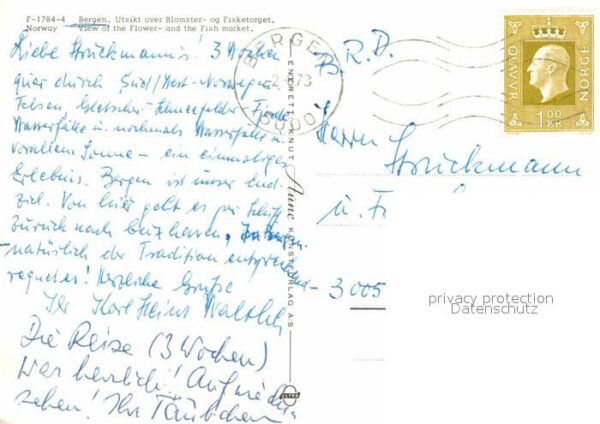 F-1784-4 Bergen. Utsikt over Blomster- og Fisketorget.
Norway View of the Flower- and the Fish market.
Liebe Strückmann's! 3 Wochen
quer durch Süd/West-Norwegen
Felsen Gletscher-Schneefelder-Fjorde
Wasserfälle u. nochmals Wasserfälle u.
vor allem Sonne - ein einmaliges
Erlebnis. Bergen ist unser End-
ziel. Von hier geht es per Schiff
zurück nach Cuxhaven.
natürlich der Tradition entsprechend -
regnet es! Herzliche Grüße
Ihr Karl Heinz
Die Reise (3 Wochen)
war herrlich! Auf wieder-
sehen! Ihr Täubchen
ENERETT: KNUT Aune KUNSTFORLAG A.S
BERGEN
73
B.R.D.
Herrn
Strückmann
u. Fr
3005
privacy protection
Datenschutz
OLAV V.R
NORGE
1.00
KR